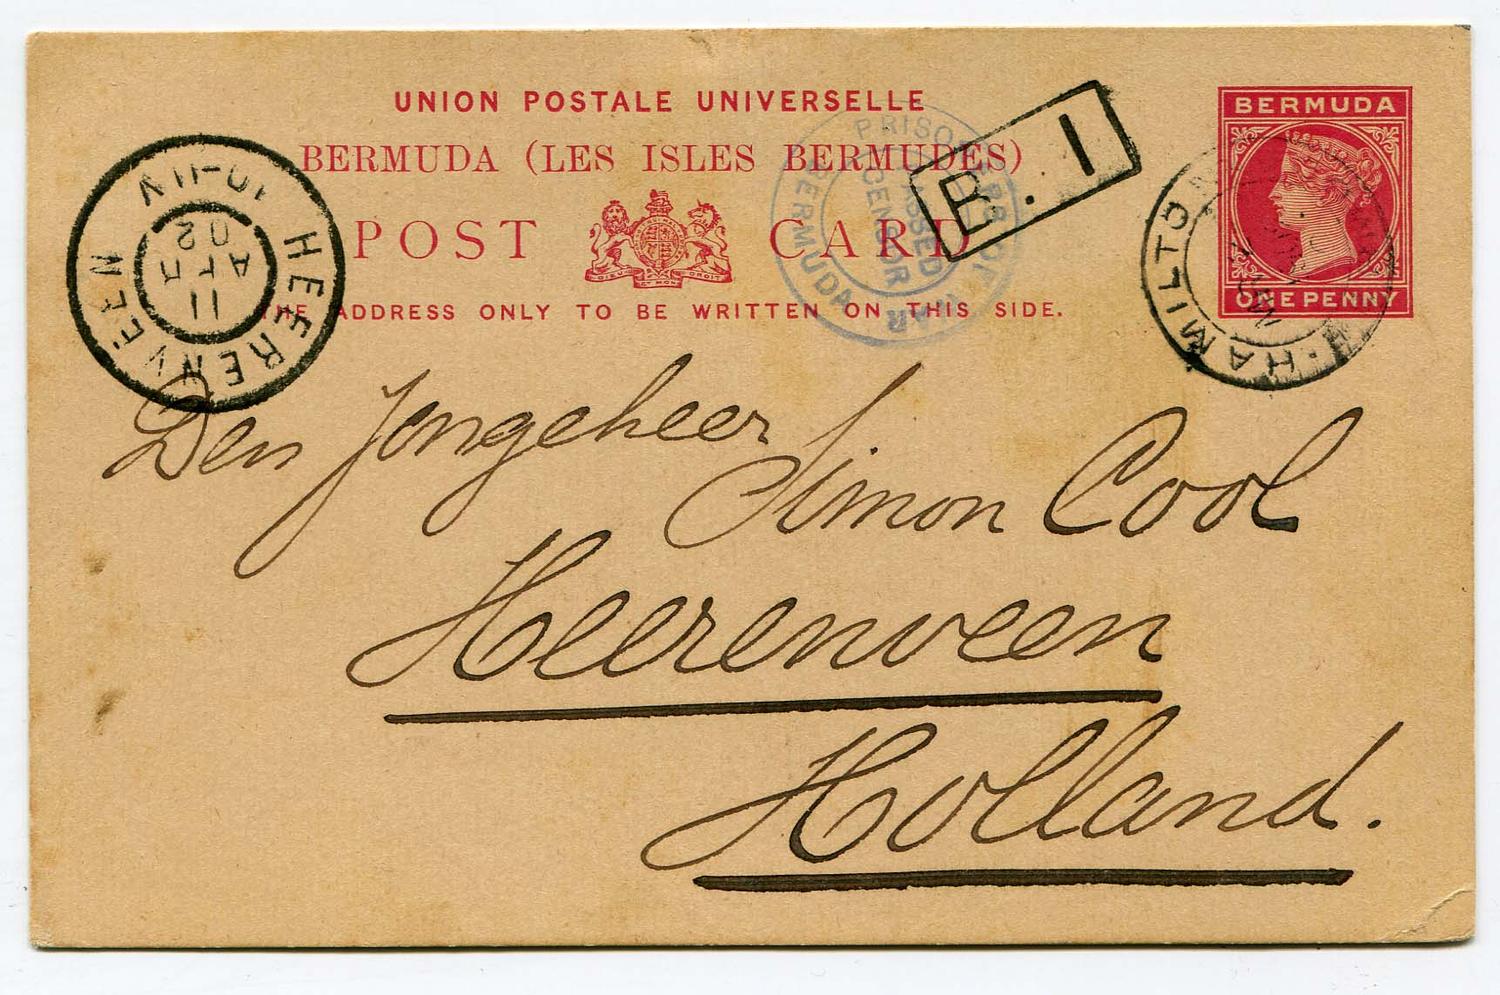 UNION POSTALE UNIVERSELLE
BERMUDA (LES ISLES BERMUDES)
POST CARD
THE ADDRESS ONLY TO BE WRITTEN ON THIS SIDE.
BERMUDA
ONE PENNY
HAMILTON
PRISONERS OF WAR
BERMUDA
PASSED
CENSOR
B. 1
HEERENVEEN
11
APL
02
10-11V
Den Jongeheer
Simon Cool
Heerenveen
Holland.